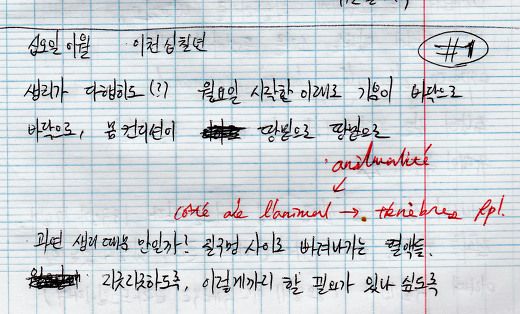 십오일 이월 이천 십칠년 #1
생리가 다행히도(?) 월요일 시작한 이래로 기분이 바닥으로
바닥으로, 몸 컨디션이 땅밑으로 땅밑으로
animalité
côté de l'animal → ténèbres fpl.
과연 생리 때문 만인가? 사이로 빠져나가는 혈액들.
이렇게까지 할 필요가 있나 싶도록